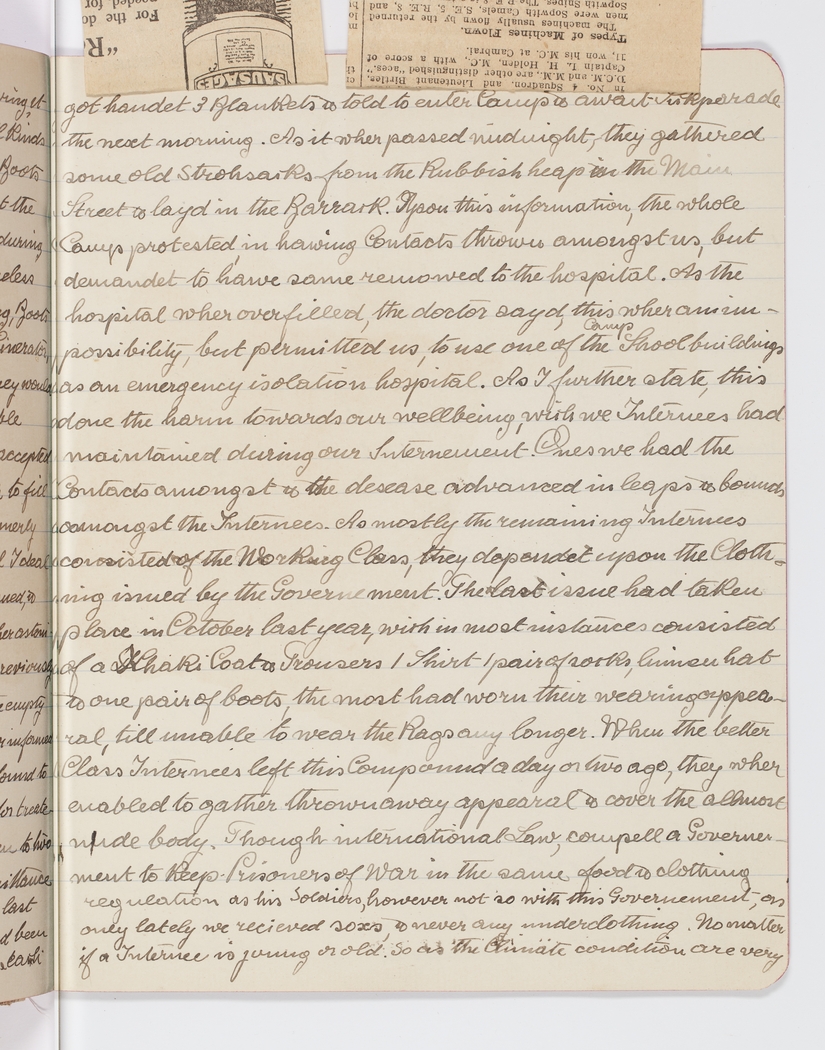 got handet 3 Blankets & told to enter Camp & await sickparade
the next morning. As it wher passed midnight, they gathered
some old Strohsacks from the Rubbish heap in the Main
Street & layd in the Barrack. Upon this information, the whole
Camp protested, in hawing Contacts thrown amongst us, but
demandet to hawe same remowed to the hospital. As the
hospital wher overfilled, the doctor sayd, this wher an im-
possibility, but permitted us, to use one of the Camp Shoolbuildings
as an emergency isolation hospital. As I further state, this
done the harm towards our wellbeing, wish we Internees had
maintained during our Internement. Ones we had the
Contacts amongst & the desease advanced in leaps & bounds
amongst the Internees. As mostly the remaining Internees
consisted of the Working Class, they dependet upon the Cloth-
ing issued by the Governement. The last issue had taken
place in October last year, wish in most instances consisted
of a Khaki Coat & Trousers 1 Shirt 1 pair of socks, linnen hat
& one pair of boots, the most had worn their wearing appea-
ral, till unable to wear the Rags any longer. When the better
Class Internees left this Compound a day or two ago, they wher
enabled to gather thrown away appearal & cover the allmost
nude body. Though international Law, compell a Governer-
ment to Keep Prisoners of War in the same food & clothing
regulation as his Soldiers, however not so with this Governement, as
only lately we recieved soxs, & never any underclothing. No matter
if a Internee is joung or old. So as the Climate condition are very
ring it
Kinds
Boots
t the
during
eless
Boots
inerator
ey would
ble
accepted
to fill
merly
I ideal
ned, &
her aston
reviously
empty
informed
ound to
for treate-
to two
ittance
last
d been
For the
needed for
SAUSAGES
in No. 4 Squadron, and Lieutenant Birtles,
D.C.M. and M.M., are other distinguished "aces."
Captain L. H. Holden, M.C., with a score of
31, won his M.C. at Cambrai.
Types of Machines Flown.
The machines usually flown by the returned
men were Sopwith Camels, S.E. 5, R.E. 8, and
Sopwith Snipes. The R.E. 8